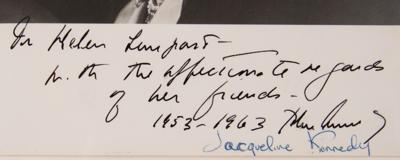 For Helen Lempart -
with the affectionate regards
of her friends -
1953 - 1963
Jacqueline Kennedy